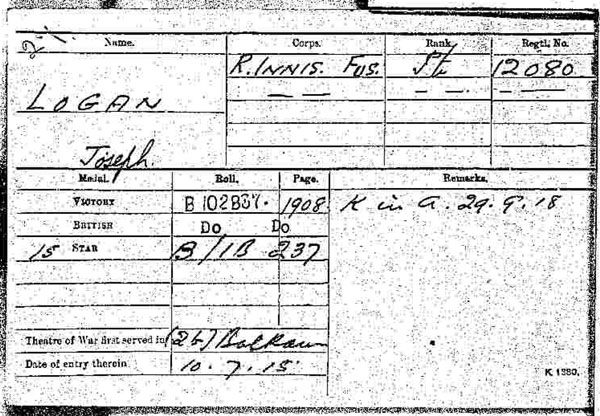 Name. Corps. Rank. Regtl. No.
R. INNIS. FUS. Pte 12080
LOGAN — — — — — —
Joseph.
Medal. Roll. Page. Remarks.
VICTORY B 102B37. 1908. K in A. 29.9.18
BRITISH Do Do
15 STAR B/1B 237
Theatre of War first served in (2b) Balkan
Date of entry therein 10.7.15
K. 1380.